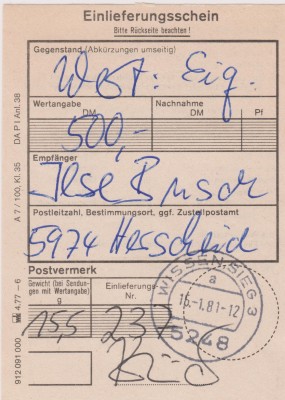 Einlieferungsschein
Bitte Rückseite beachten!
Gegenstand (Abkürzungen umseitig)
Wert: Eig.
Wertangabe DM
Nachnahme DM Pf
500,-
Empfänger
Ilse Busch
Postleitzahl, Bestimmungsort, ggf. Zustellpostamt
5974 Herscheid
Postvermerk
Gewicht (bei Sendungen mit Wertangabe) g
Einlieferungs-Nr.
15,5 237
WISSEN, SIEG 3
a
15.-1.81-12
5248
DA P I Anl. 38
A 7/100, Kl. 35
4.77 – 6
912 091 000